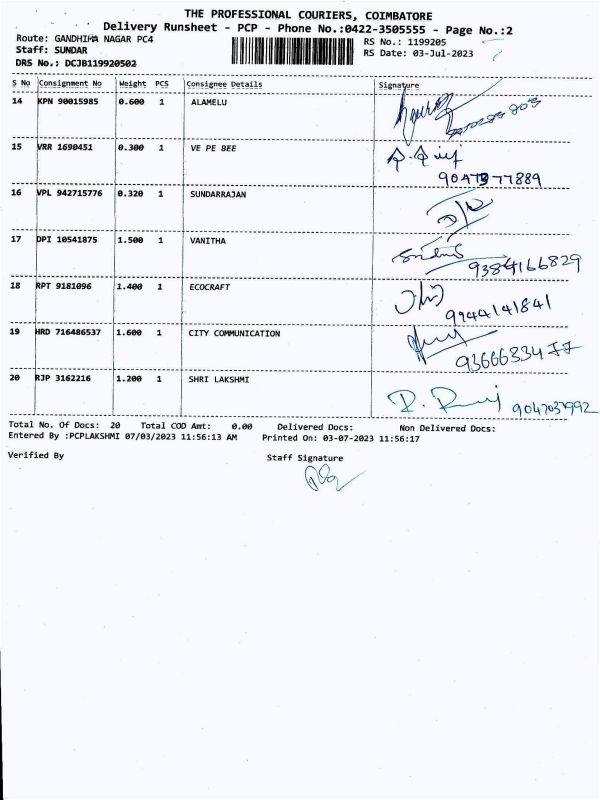 THE PROFESSIONAL COURIERS, COIMBATORE
Delivery Runsheet - PCP - Phone No.:0422-3505555 - Page No.:2
Route: GANDHIMA NAGAR PC4
RS No.: 1199205
Staff: SUNDAR
RS Date: 03-Jul-2023
DRS No.: DCJB119920502
S No Consignment No Weight PCS Consignee Details Signature
14 KPN 90015985 0.600 1 ALAMELU
15 VRR 1690451 0.300 1 VE PE BEE
9047377889
16 VPL 942715776 0.320 1 SUNDARRAJAN
17 DPI 10541875 1.500 1 VANITHA
9384166829
18 RPT 9181096 1.400 1 ECOCRAFT
9944141841
19 HRD 716486537 1.600 1 CITY COMMUNICATION
9366633477
20 RJP 3162216 1.200 1 SHRI LAKSHMI
9047037992
Total No. Of Docs: 20 Total COD Amt: 0.00 Delivered Docs: Non Delivered Docs:
Entered By :PCPLAKSHMI 07/03/2023 11:56:13 AM Printed On: 03-07-2023 11:56:17
Verified By Staff Signature